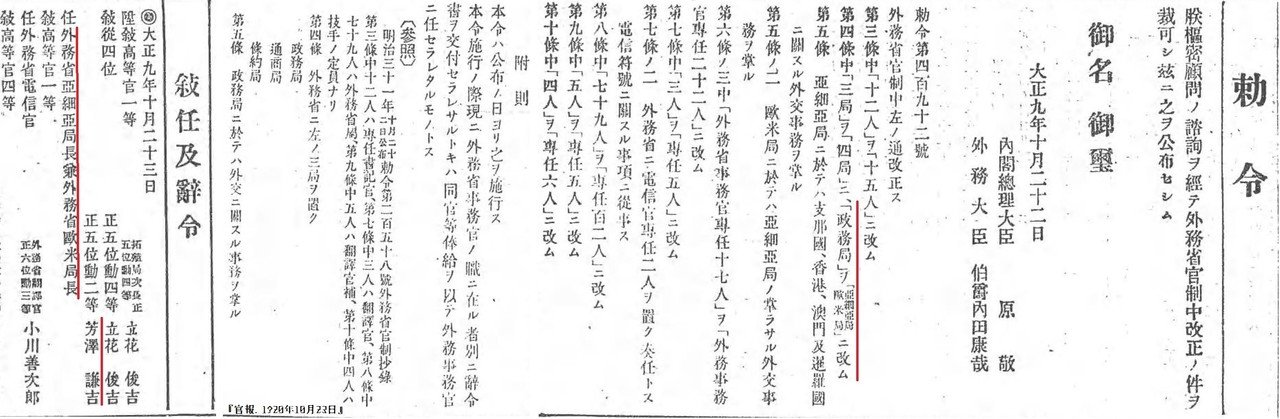 勅令
朕樞密顧問ノ諮詢ヲ經テ外務省官制中改正ノ件ヲ
裁可シ玆ニ之ヲ公布セシム
御名 御璽
大正九年十月二十二日
內閣總理大臣 原 敬
外務大臣 伯爵內田康哉
勅令第四百九十二號
外務省官制中左ノ通改正ス
第三條中「十二人」ヲ「十五人」ニ改ム
第四條中「三局」ヲ「四局」ニ、「政務局」ヲ「亞細亞局 歐米局」ニ改ム
第五條 亞細亞局ニ於テハ支那國、香港、澳門及暹羅國
ニ關スル外交事務ヲ掌ル
第五條ノ二 歐米局ニ於テハ亞細亞局ノ掌ラサル外交事
務ヲ掌ル
第六條ノ三中「外務省事務官專任十七人」ヲ「外務事務
官專任二十二人」ニ改ム
第七條中「三人」ヲ「專任五人」ニ改ム
第七條ノ二 外務省ニ電信官專任二人ヲ置ク奏任トス
電信符號ニ關スル事項ニ從事ス
第八條中「七十九人」ヲ「專任百二人」ニ改ム
第九條中「五人」ヲ「專任五人」ニ改ム
第十條中「四人」ヲ「專任六人」ニ改ム
附則
本令ハ公布ノ日ヨリ之ヲ施行ス
本令施行ノ際現ニ外務省事務官ノ職ニ在ル者別ニ辭令
書ヲ交付セラレサルトキハ同官等俸給ヲ以テ外務事務官
ニ任セラレタルモノトス
〔參照〕
明治三十一年十月二十二日公布勅令第二百五十八號外務省官制抄錄
第三條中十二人ハ專任書記官、第七條中三人ハ翻譯官、第八條中
七十九人ハ外務省屬、第九條中五人ハ翻譯官補、第十條中四人ハ
技手ノ定員ナリ
第四條 外務省ニ左ノ三局ヲ置ク
政務局
通商局
條約局
第五條 政務局ニ於テハ外交ニ關スル事務ヲ掌ル
『官報. 1920年10月23日』
敍任及辭令
大正九年十月二十三日
陞敍高等官一等 拓殖局次長正五位勳四等 立花 俊吉
敍從四位 正五位勳四等 立花 俊吉
任外務省亞細亞局長兼外務省歐米局長 正五位勳二等 芳澤 謙吉
敍高等官一等
任外務省電信官 外務省翻譯官正六位勳三等 小川善次郎
敍高等官四等